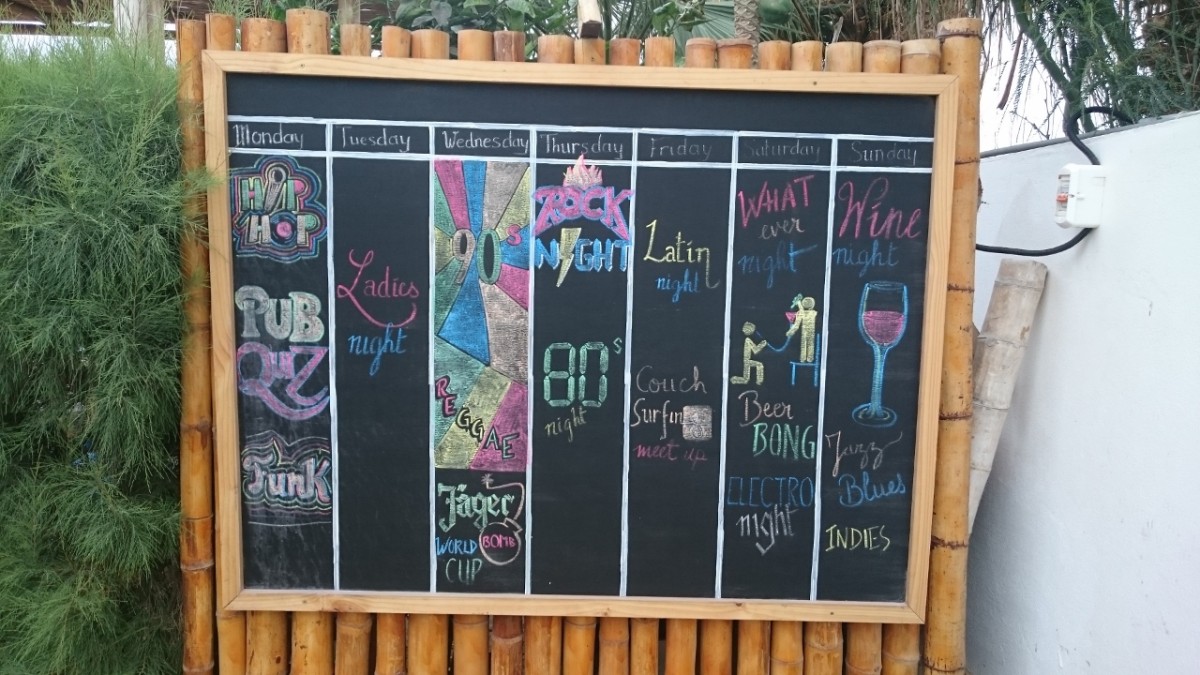 Monday
Tuesday
Wednesday
Thursday
Friday
Saturday
Sunday
HIP
HOP
PUB
QUIZ
Funk
Ladies
night
90s
REGGAE
Jäger
BOMB
WORLD
CUP
ROCK
NIGHT
80s
night
Latin
night
Couch
Surfing
meet up
WHAT
ever
night
Beer
BONG
ELECTRO
night
Wine
night
Jazz
Blues
INDIES